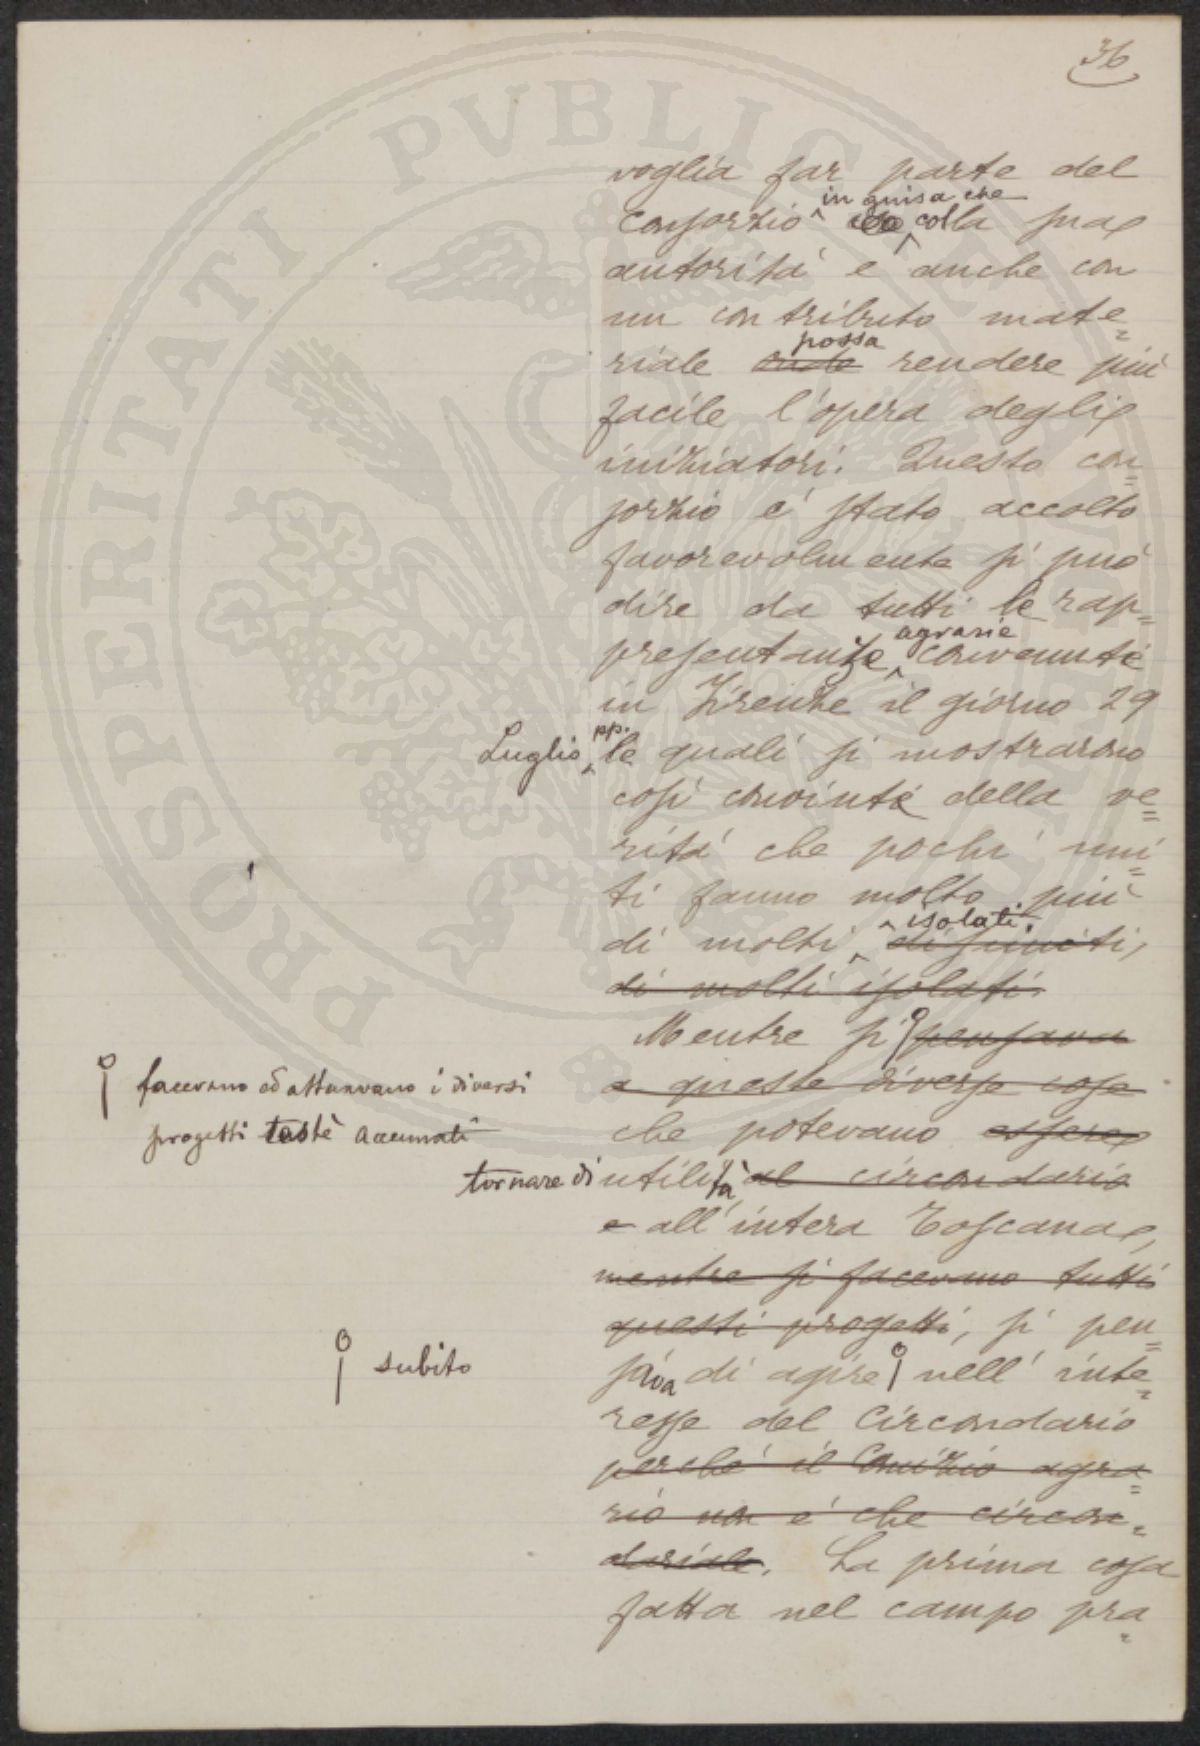 36
voglia far parte del
in guisa che
Consorzio colla sua
autorità e anche con
un contributo mate=
possa
riale onde rendere più
facile l'opera degli
iniziatori. Questo con=
sorzio è stato accolto
favorevolmente si può
dire da tutti le rap=
agrarie
presentanze convenute
in Firenze il giorno 29
Luglio pp. le quali si mostrarono
così convinte della ve=
rità che pochi uni=
ti fanno molto più
isolati.
di molti disuniti,
di molti isolati.
Mentre si pensava
facevano ed attuavano i diversi
a queste diverse cose
progetti testè accennati
che potevano essere
tornare di utilità al circondario
e all'intera Toscana,
mentre si facevano tutti
questi progetti, si pen=
subito
sava di agire nell'inte=
resse del Circondario
perché il Comizio agra=
rio non è che circon=
dariale. La prima cosa
fatta nel campo pra=
PROSPERITATI PVBLICAE